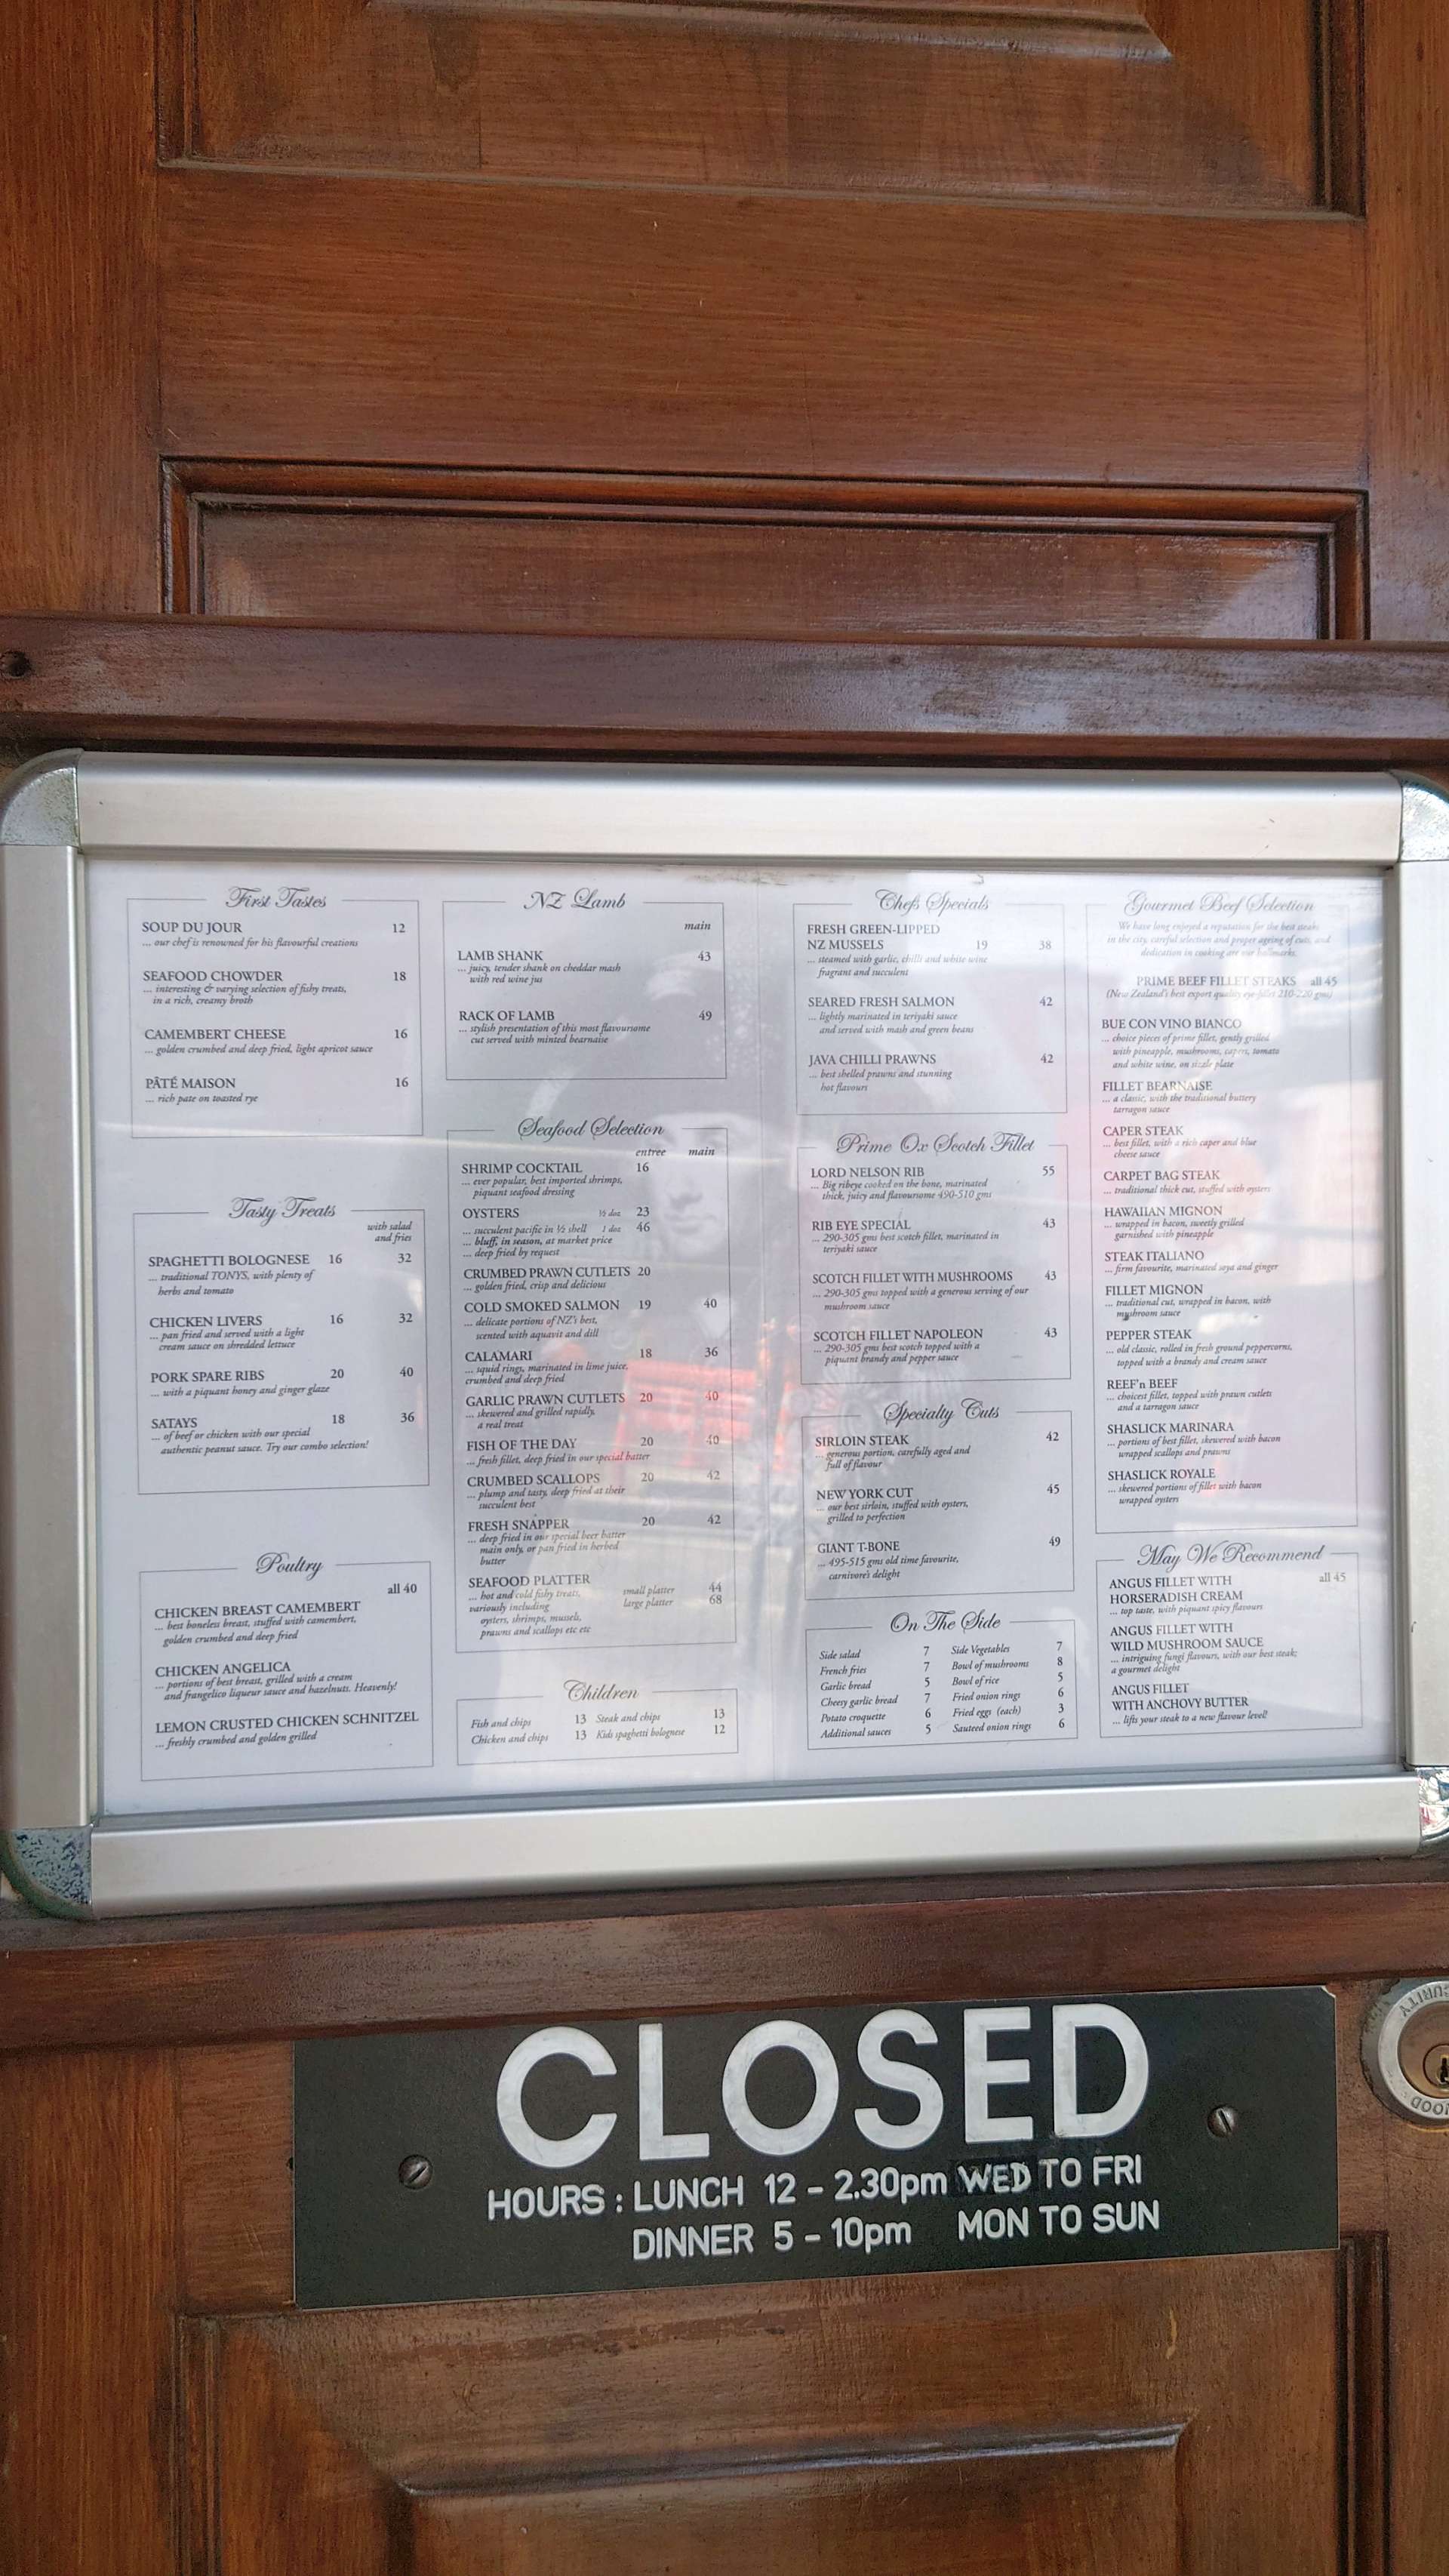 First Tastes
SOUP DU JOUR 12
... our chef is renowned for his flavourful creations
SEAFOOD CHOWDER 18
... interesting & varying selection of fishy treats,
in a rich, creamy broth
CAMEMBERT CHEESE 16
... golden crumbed and deep fried, light apricot sauce
PÂTÉ MAISON 16
... rich pate on toasted rye
Tasty Treats
with salad
and fries
SPAGHETTI BOLOGNESE 16 32
... traditional TONYS, with plenty of
herbs and tomato
CHICKEN LIVERS 16 32
... pan fried and served with a light
cream sauce on shredded lettuce
PORK SPARE RIBS 20 40
... with a piquant honey and ginger glaze
SATAYS 18 36
... of beef or chicken with our special
authentic peanut sauce. Try our combo selection!
Poultry
all 40
CHICKEN BREAST CAMEMBERT
... best boneless breast, stuffed with camembert,
golden crumbed and deep fried
CHICKEN ANGELICA
... portions of best breast, grilled with a cream
and frangelico liqueur sauce and hazelnuts. Heavenly!
LEMON CRUSTED CHICKEN SCHNITZEL
... freshly crumbed and golden grilled
NZ Lamb
main
LAMB SHANK 43
... juicy, tender shank on cheddar mash
with red wine jus
RACK OF LAMB 49
... stylish presentation of this most flavoursome
cut served with minted bearnaise
Seafood Selection
entree main
SHRIMP COCKTAIL 16
... ever popular, best imported shrimps,
piquant seafood dressing
OYSTERS ½ doz 23
... succulent pacific in ½ shell 1 doz 46
... bluff, in season, at market price
... deep fried by request
CRUMBED PRAWN CUTLETS 20
... golden fried, crisp and delicious
COLD SMOKED SALMON 19 40
... delicate portions of NZ's best,
scented with aquavit and dill
CALAMARI 18 36
... squid rings, marinated in lime juice,
crumbed and deep fried
GARLIC PRAWN CUTLETS 20 40
... skewered and grilled rapidly,
a real treat
FISH OF THE DAY 20 40
... fresh fillet, deep fried in our special batter
CRUMBED SCALLOPS 20 42
... plump and tasty, deep fried at their
succulent best
FRESH SNAPPER 20 42
... deep fried in our special beer batter
main only, or pan fried in herbed
butter
SEAFOOD PLATTER
... hot and cold fishy treats, small platter 44
variously including large platter 68
oysters, shrimps, mussels,
prawns and scallops etc etc
Children
Fish and chips 13 Steak and chips 13
Chicken and chips 13 Kids spaghetti bolognese 12
Chefs Specials
FRESH GREEN-LIPPED
NZ MUSSELS 19 38
... steamed with garlic, chilli and white wine
fragrant and succulent
SEARED FRESH SALMON 42
... lightly marinated in teriyaki sauce
and served with mash and green beans
JAVA CHILLI PRAWNS 42
... best shelled prawns and stunning
hot flavours
Prime Ox Scotch Fillet
LORD NELSON RIB 55
... Big ribeye cooked on the bone, marinated
thick, juicy and flavoursome 490-510 gms
RIB EYE SPECIAL 43
... 290-305 gms best scotch fillet, marinated in
teriyaki sauce
SCOTCH FILLET WITH MUSHROOMS 43
... 290-305 gms topped with a generous serving of our
mushroom sauce
SCOTCH FILLET NAPOLEON 43
... 290-305 gms best scotch topped with a
piquant brandy and pepper sauce
Specialty Cuts
SIRLOIN STEAK 42
... generous portion, carefully aged and
full of flavour
NEW YORK CUT 45
... our best sirloin, stuffed with oysters,
grilled to perfection
GIANT T-BONE 49
... 495-515 gms old time favourite,
carnivore's delight
On The Side
Side salad 7 Side Vegetables 7
French fries 7 Bowl of mushrooms 8
Garlic bread 5 Bowl of rice 5
Cheesy garlic bread 7 Fried onion rings 6
Potato croquette 6 Fried eggs (each) 3
Additional sauces 5 Sauteed onion rings 6
Gourmet Beef Selection
We have long enjoyed a reputation for the best steaks
in the city, careful selection and proper ageing of cuts, and
dedication in cooking are our hallmarks.
PRIME BEEF FILLET STEAKS all 45
(New Zealand's best export quality eye-fillet 210-220 gms)
BUE CON VINO BIANCO
... choice pieces of prime fillet, gently grilled
with pineapple, mushrooms, capers, tomato
and white wine, on sizzle plate
FILLET BEARNAISE
... a classic, with the traditional buttery
tarragon sauce
CAPER STEAK
... best fillet, with a rich caper and blue
cheese sauce
CARPET BAG STEAK
... traditional thick cut, stuffed with oysters
HAWAIIAN MIGNON
... wrapped in bacon, sweetly grilled
garnished with pineapple
STEAK ITALIANO
... firm favourite, marinated soya and ginger
FILLET MIGNON
... traditional cut, wrapped in bacon, with
mushroom sauce
PEPPER STEAK
... old classic, rolled in fresh ground peppercorns,
topped with a brandy and cream sauce
REEF'n BEEF
... choicest fillet, topped with prawn cutlets
and a tarragon sauce
SHASLICK MARINARA
... portions of best fillet, skewered with bacon
wrapped scallops and prawns
SHASLICK ROYALE
... skewered portions of fillet with bacon
wrapped oysters
May We Recommend
ANGUS FILLET WITH all 45
HORSERADISH CREAM
... top taste, with piquant spicy flavours
ANGUS FILLET WITH
WILD MUSHROOM SAUCE
... intriguing fungi flavours, with our best steak;
a gourmet delight
ANGUS FILLET
WITH ANCHOVY BUTTER
... lifts your steak to a new flavour level!
CLOSED
HOURS : LUNCH 12 - 2.30pm WED TO FRI
DINNER 5 - 10pm MON TO SUN